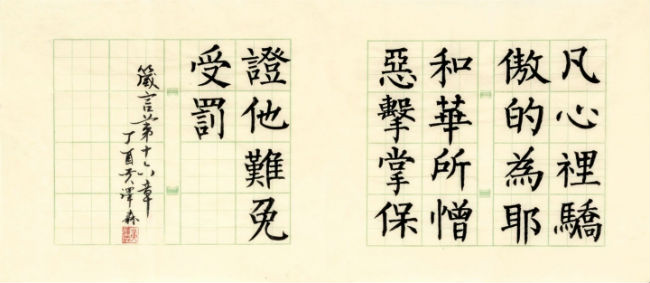 凡心裡驕
傲的為耶
和華所憎
惡擊掌保
證他難免
受罰
箴言第十六章
丁酉天澤森